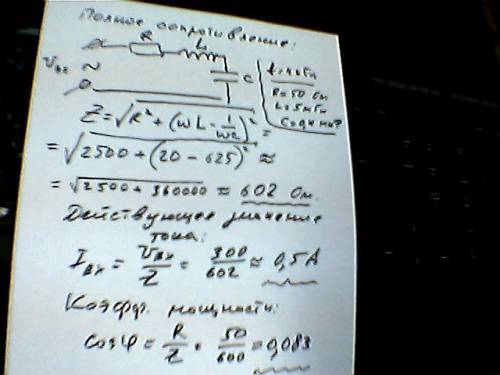 Полное сопротивление:
R L
U вх ~ C
R = 50 Ом
L = 5 мГн
Z = √(R² + (ωL - 1/ωC)²) =
= √(2500 + (20 - 625)²) ≈
= √(2500 + 360000) ≈ 602 Ом.
Действующее значение
тока:
I вх = U вх / Z = 300 / 602 ≈ 0,5 А
Коэфф. мощности:
cos φ = R / Z = 50 / 600 = 0,083